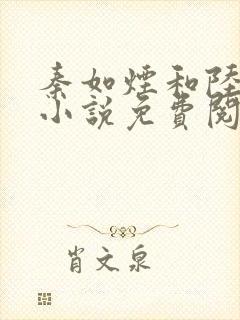 秦如煙和陸
小說免費閱
肖文泉